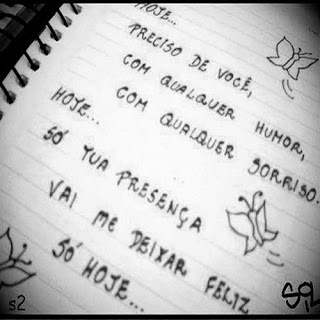 HOJE...
PRECISO DE VOCÊ,
COM QUALQUER HUMOR,
COM QUALQUER SORRISO.
HOJE...
SÓ TUA PRESENÇA
VAI ME DEIXAR FELIZ
SÓ HOJE...
s2